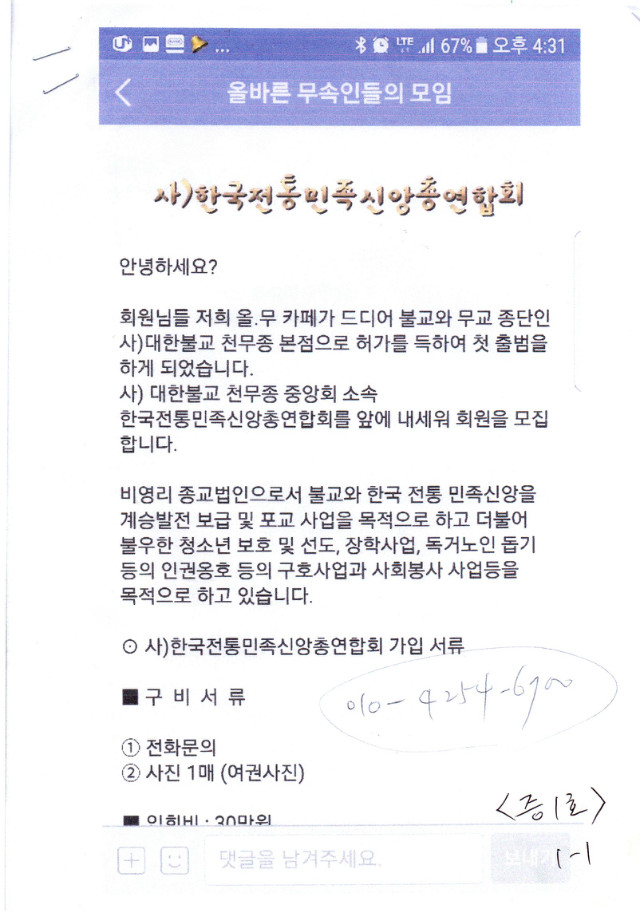 ... LTE 67% 오후 4:31
올바른 무속인들의 모임
사)한국전통민족신앙총연합회
안녕하세요?
회원님들 저희 올.무 카페가 드디어 불교와 무교 종단인
사)대한불교 천무종 본점으로 허가를 득하여 첫 출범을
하게 되었습니다.
사) 대한불교 천무종 중앙회 소속
한국전통민족신앙총연합회를 앞에 내세워 회원을 모집
합니다.
비영리 종교법인으로서 불교와 한국 전통 민족신앙을
계승발전 보급 및 포교 사업을 목적으로 하고 더불어
불우한 청소년 보호 및 선도, 장학사업, 독거노인 돕기
등의 인권옹호 등의 구호사업과 사회봉사 사업등을
목적으로 하고 있습니다.
⊙ 사)한국전통민족신앙총연합회 가입 서류
■ 구 비 서 류
010-4254-6900
① 전화문의
② 사진 1매 (여권사진)
<증1호>
■ 입회비 : 30만원
댓글을 남겨주세요. 보내기
1-1